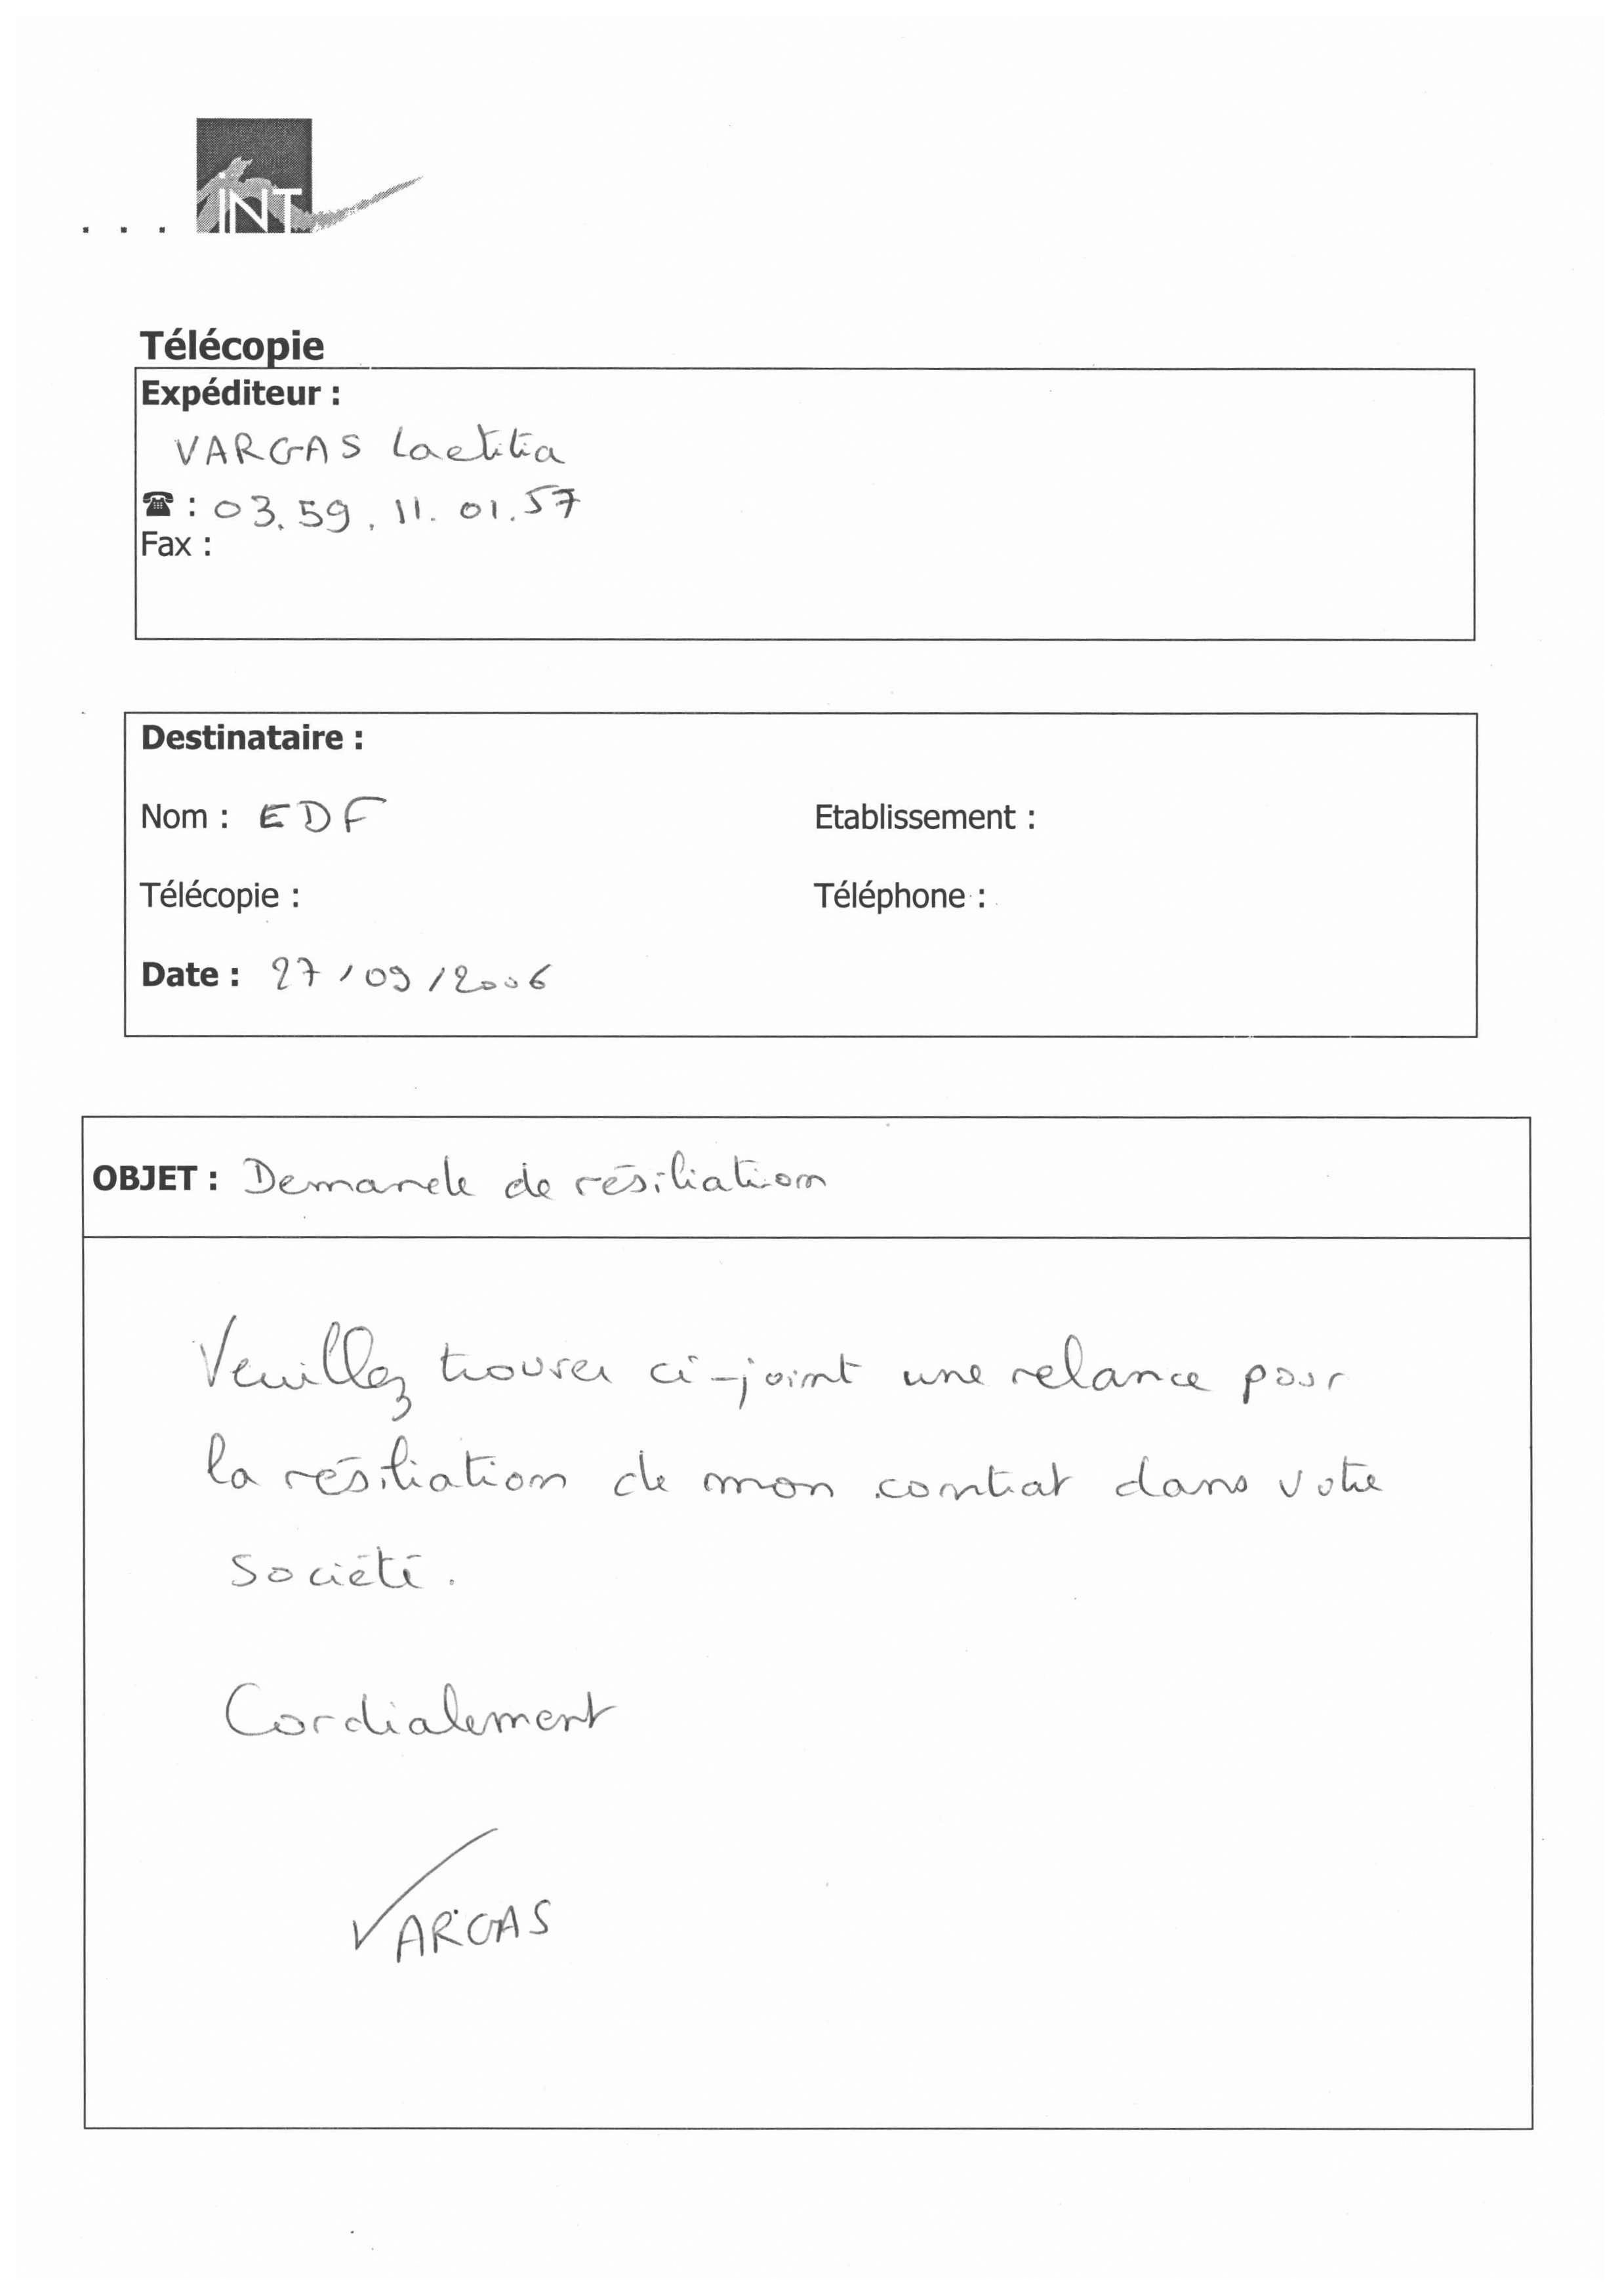 ... INT
Télécopie
Expéditeur :
VARGAS Laetitia
☎ : 03.59.11.01.57
Fax :
Destinataire :
Nom : EDF Etablissement :
Télécopie : Téléphone :
Date : 27/09/2006
OBJET : Demande de résiliation
Veuillez trouver ci-joint une relance pour
la résiliation de mon contrat dans votre
société.
Cordialement
VARGAS